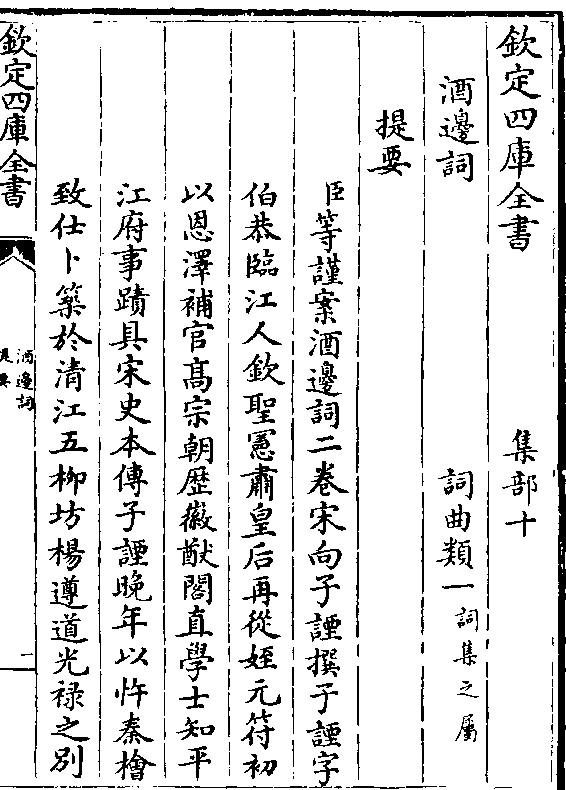 欽定四庫全書　集部十
酒邊詞　詞曲類一詞集之屬
提要
臣等謹案酒邊詞二卷宋向子諲撰子諲字
伯恭臨江人欽聖憲肅皇后再從姪元符初
以恩澤補官髙宗朝歴徽猷閣直學士知平
江府事蹟具宋史本傳子諲晩年以忤秦檜
致仕卜築於清江五栁坊楊遵道光禄之別
欽定四庫全書
酒邊詞
提要